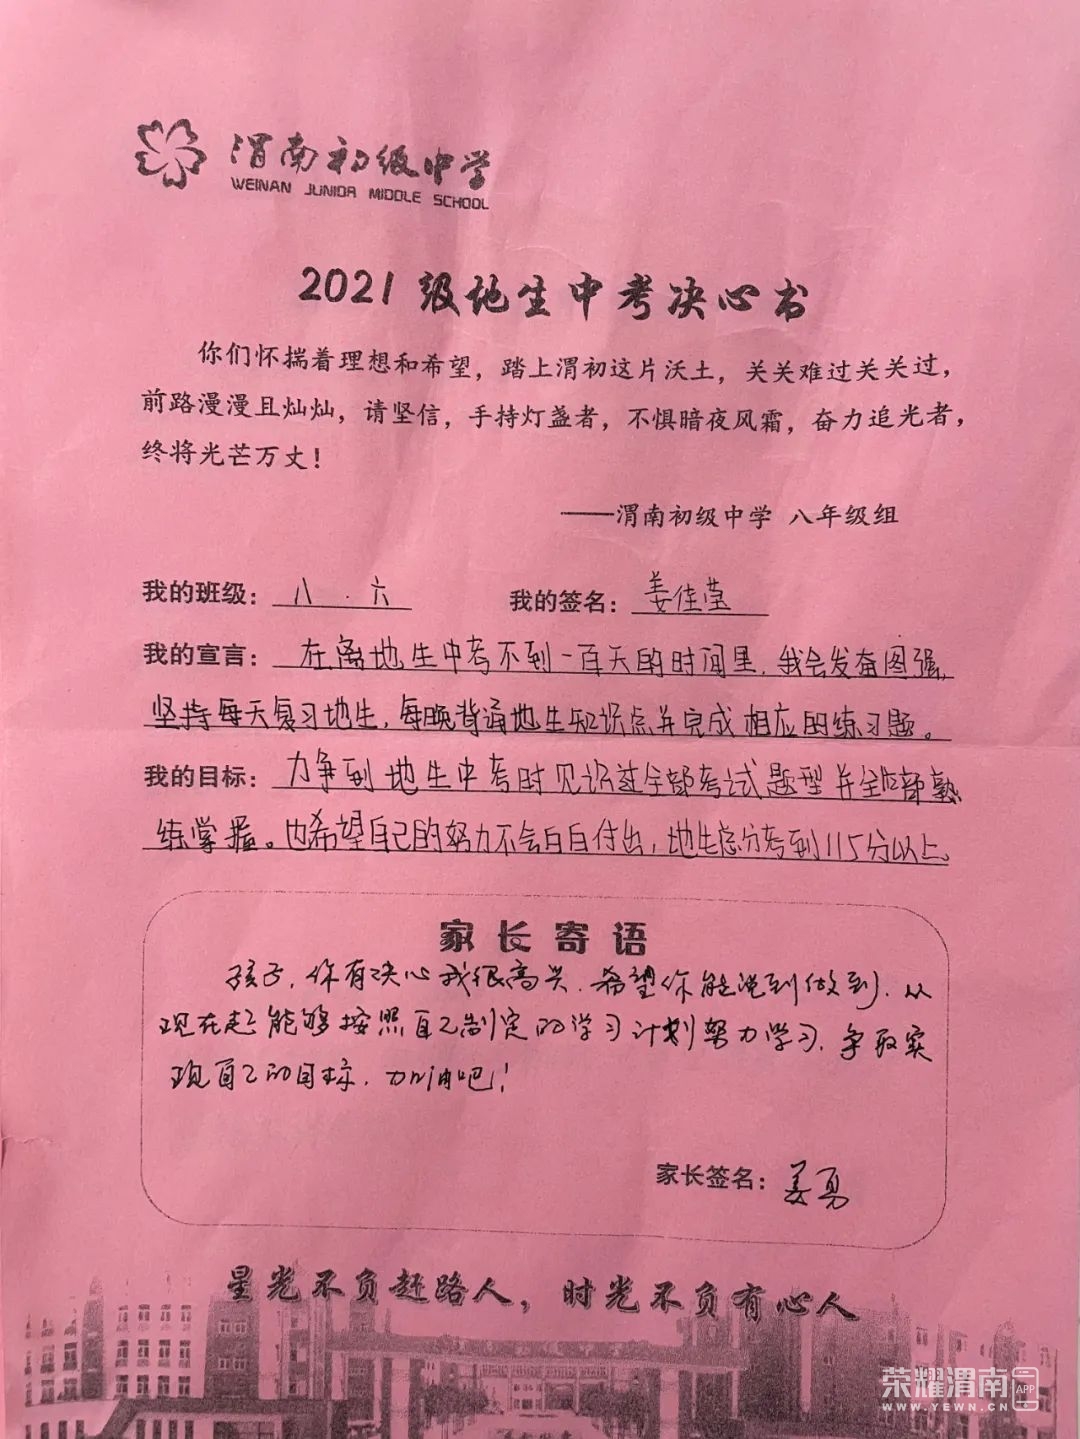 渭南初级中学
WEINAN JUNIOR MIDDLE SCHOOL
2021级地生中考决心书
你们怀揣着理想和希望，踏上渭初这片沃土，关关难过关关过，
前路漫漫且灿灿，请坚信，手持灯盏者，不惧暗夜风霜，奋力追光者，
终将光芒万丈！
——渭南初级中学 八年级组
我的班级：八．六 我的签名：姜佳莹
我的宣言：在离地生中考不到一百天的时间里，我会发奋图强，
坚持每天复习地生，每晚背诵地生知识点并完成相应的练习题。
我的目标：力争到地生中考时见识过全部考试题型并全部熟
练掌握。也希望自己的努力不会白白付出，地生总分考到115分以上。
家长寄语
孩子，你有决心我很高兴，希望你能说到做到，从
现在起能够按照自己制定的学习计划努力学习，争取实
现自己的目标，加油吧！
家长签名：姜勇
星光不负赶路人，时光不负有心人
荣耀渭南 APP
WWW.YEWN.CN